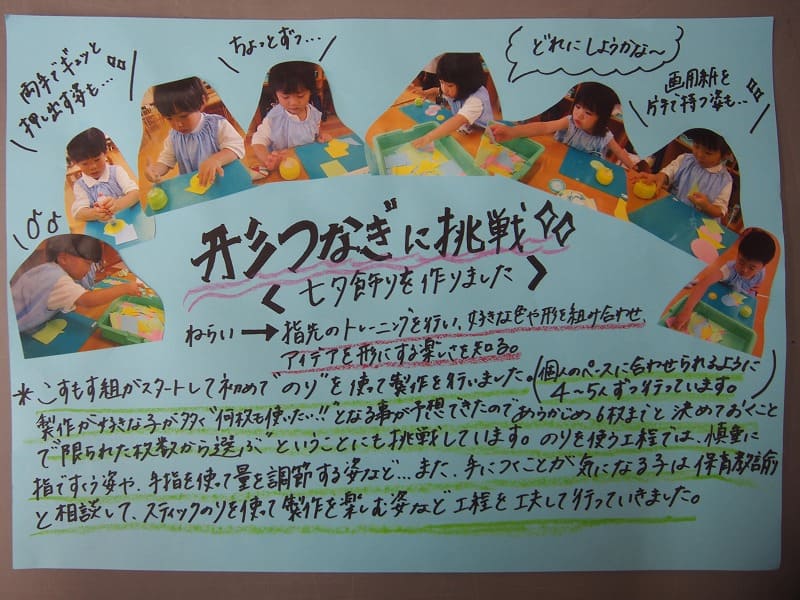 両手でギュッと
押し出す姿も…
ちょっとずつ…
どれにしようかな〜
画用紙を
片手で持つ姿も…
形つなぎに挑戦
＜七夕飾りを作りました＞
ねらい→指先のトレーニングを行い、好きな色や形を組み合わせ、
アイデアを形にする楽しさを知る。
＊こすもす組がスタートして初めて"のり"を使って製作を行いました。(個人のペースに合わせられるように
4〜5人ずつ行っています。)
製作が好きな子が多く"何枚も使いたい!!"となる事が予想できたのであらかじめ6枚までと決めておくこと
で"限られた枚数から選ぶ"ということにも挑戦しています。のりを使う工程では、慎重に
指ですくう姿や、手指を使って量を調節する姿など…また、手につくことが気になる子は保育教諭
と相談して、スティックのりを使って製作を楽しむ姿など工程を工夫して行っていきました。